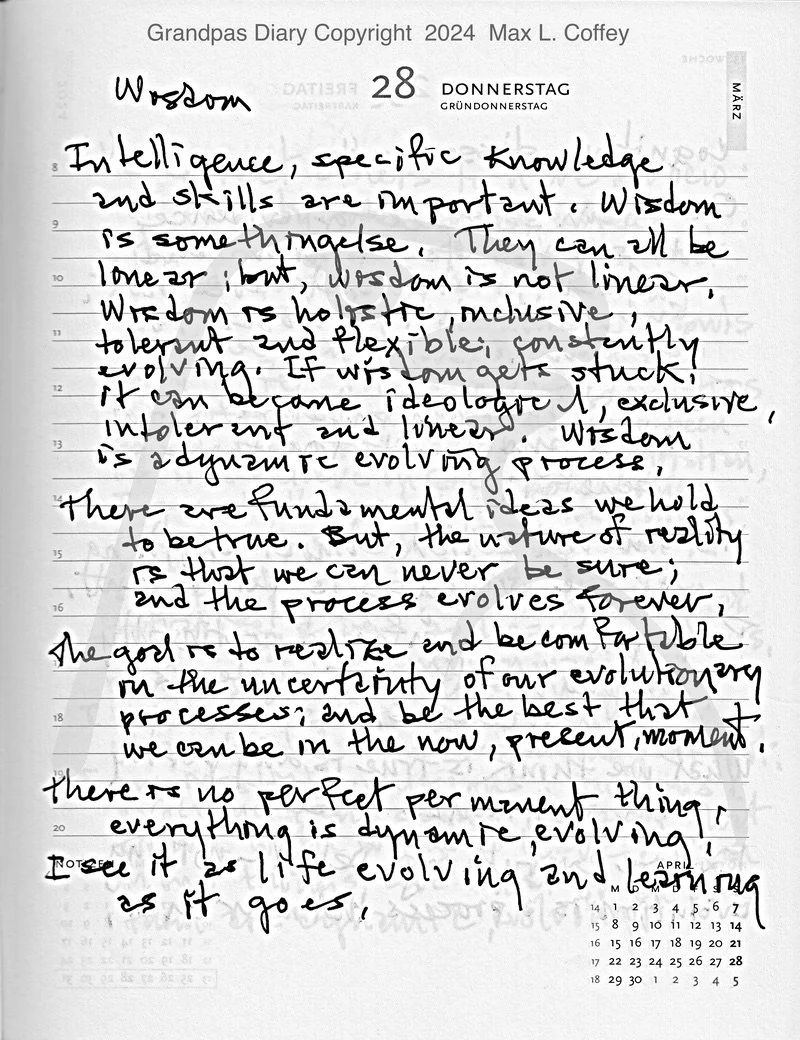 Grandpas Diary Copyright 2024 Max L. Coffey
28 DONNERSTAG
GRÜNDONNERSTAG
MÄRZ
Wisdom
8 Intelligence, specific knowledge
and skills are important. Wisdom
9 is somethingelse. They can all be
10 linear; but, wisdom is not linear.
Wisdom is holistic, inclusive,
11 tolerant and flexible; constently
evolving. If wisdom gets stuck;
12 it can become ideological, exclusive,
13 intolerant and linear. Wisdom
is a dynamic evolving process.
14 There are fundamental ideas we hold
to be true. But, the nature of reality
15 is that we can never be sure;
16 and the process evolves forever.
The goal is to realize and be comfortable
in the uncertainty of our evolutionary
18 processes; and be the best that
we can be in the now, present, moment.
19 There is no perfect permanent thing,
20 everything is dynamic, evolving!
NOTIZEN
I see it as life evolving and learning
as it goes.
APRIL
M D M D F S S
14 1 2 3 4 5 6 7
15 8 9 10 11 12 13 14
16 15 16 17 18 19 20 21
17 22 23 24 25 26 27 28
18 29 30 1 2 3 4 5